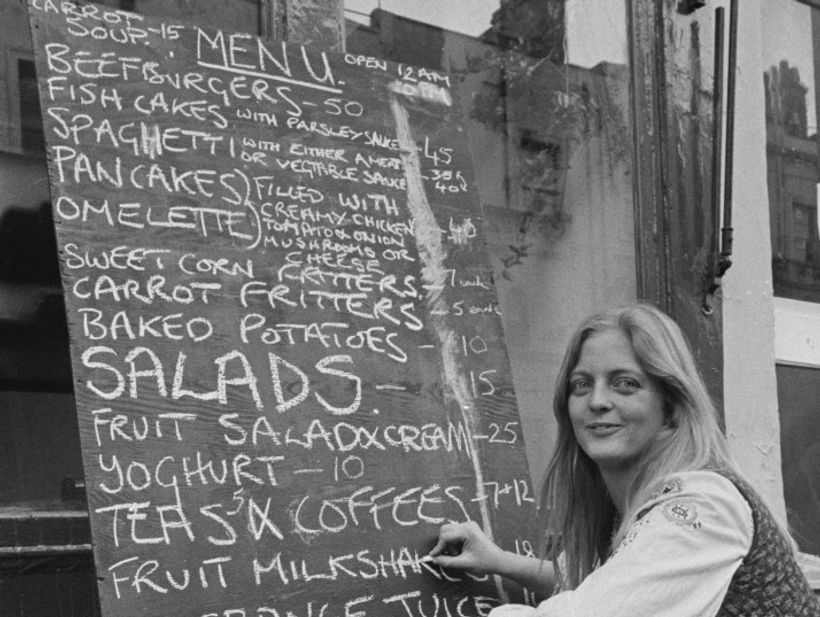 CARROT
SOUP. -15
MENU.
OPEN 12AM
10 PM
BEEFBURGERS - 50
FISH CAKES WITH PARSLEY SAUCE - 45
SPAGHETTI WITH EITHER A MEAT - 35
OR VEGTABLE SAUCE 40
PANCAKES) FILLED WITH
OMELETTE) CREAMY CHICKEN - 40
TOMATO & ONION
MUSHROOMS OR
CHEESE
SWEET CORN FRITTERS - 7 each
CARROT FRITTERS - 5 each
BAKED POTATOES - 10
SALADS. - 15
FRUIT SALAD & CREAM - 25
YOGHURT - 10
TEAS 5 & COFFEES - 7 + 12
FRUIT MILKSHAKES 18
ORANGE JUICE